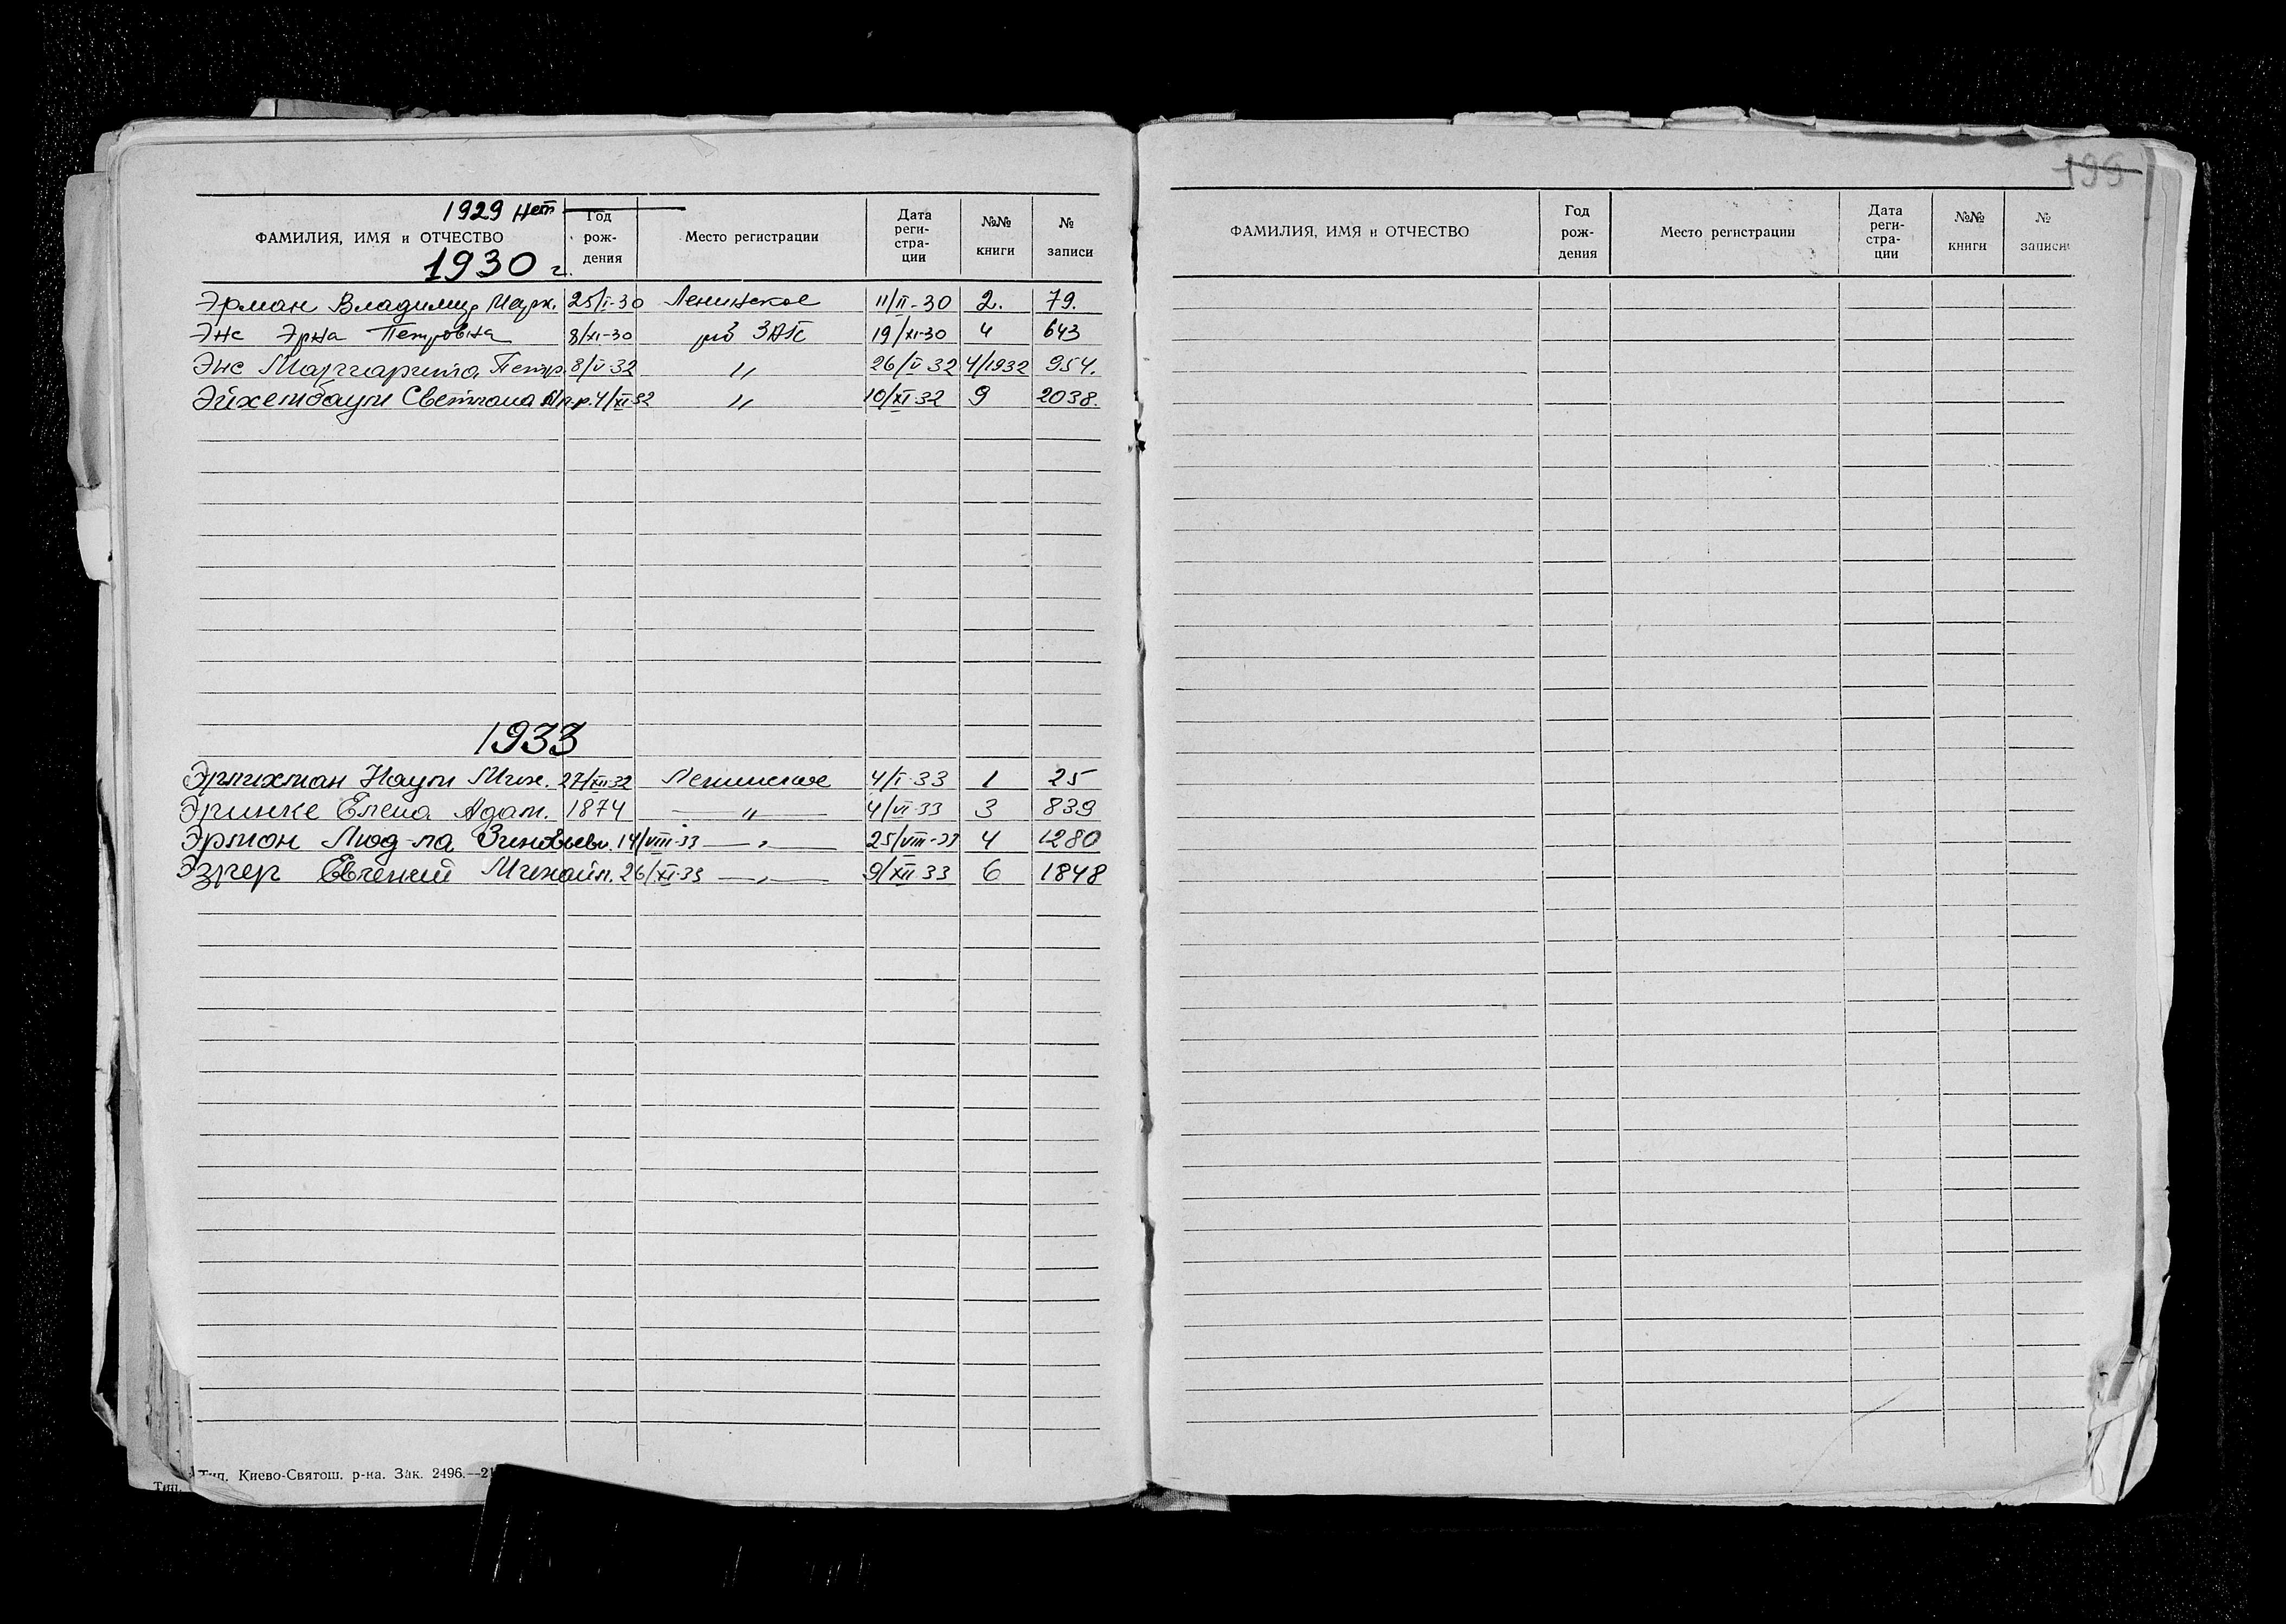 1929 нет
ФАМИЛИЯ, ИМЯ и ОТЧЕСТВО Год рож- дения Место регистрации Дата реги- стра- ции №№ книги № записи
1930 г.
Эрман Владимир Марк. 25/I-30 Ленинское 11/II-30 2. 79.
Энс Эрна Петровна 8/XI-30 ЗАГС 19/XI-30 4 643
Энс Маргарита Петр. 8/V-32 " 26/V 32 4/1932 954.
Эйхембаум Светлана 4/XI-32 " 10/XI-32 9 2038.
1933
Эрлихман Наум Мих. 27/XII-32 Ленинское 4/I-33 1 25
Эринке Елена Адам. 1874 —"— 4/VI-33 3 839
Эрмон Люд-ла Зиновьевн. 14/VIII-33 —"— 25/VIII-33 4 1280
Эзрер Евгений Михайл. 26/XI-33 —"— 9/XII 33 6 1848
Тип. Киево-Святош. р-на. Зак. 2496.—21
Тип.
199
ФАМИЛИЯ, ИМЯ и ОТЧЕСТВО Год рож- дения Место регистрации Дата реги- стра- ции №№ книги № записи